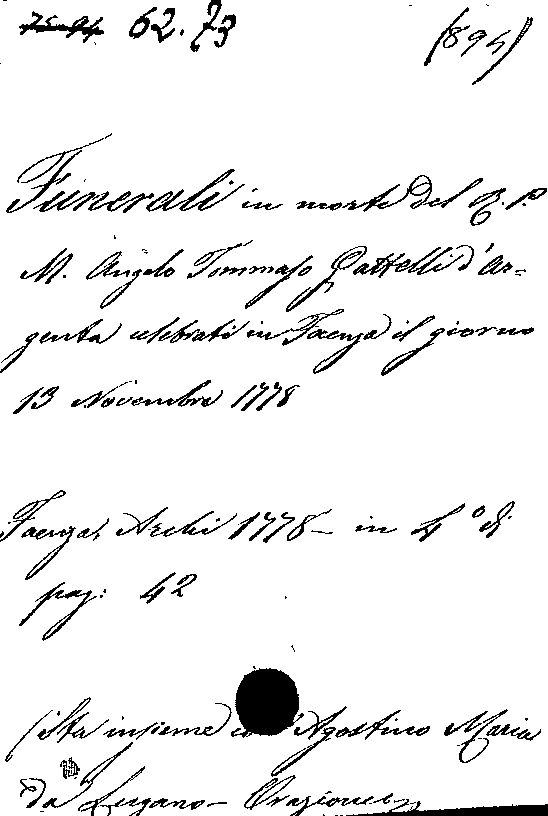 75-94 62.73 (894)
Funerali in morte del R. P.
M. Angelo Tommaso Gattelli d'Ar-
genta celebrati in Faenza il giorno
13 Novembre 1778
Faenza, Archi 1778 - in 4° di
pag: 42
(Sta insieme d'Agostino Maria
da Lugano - Orazione)